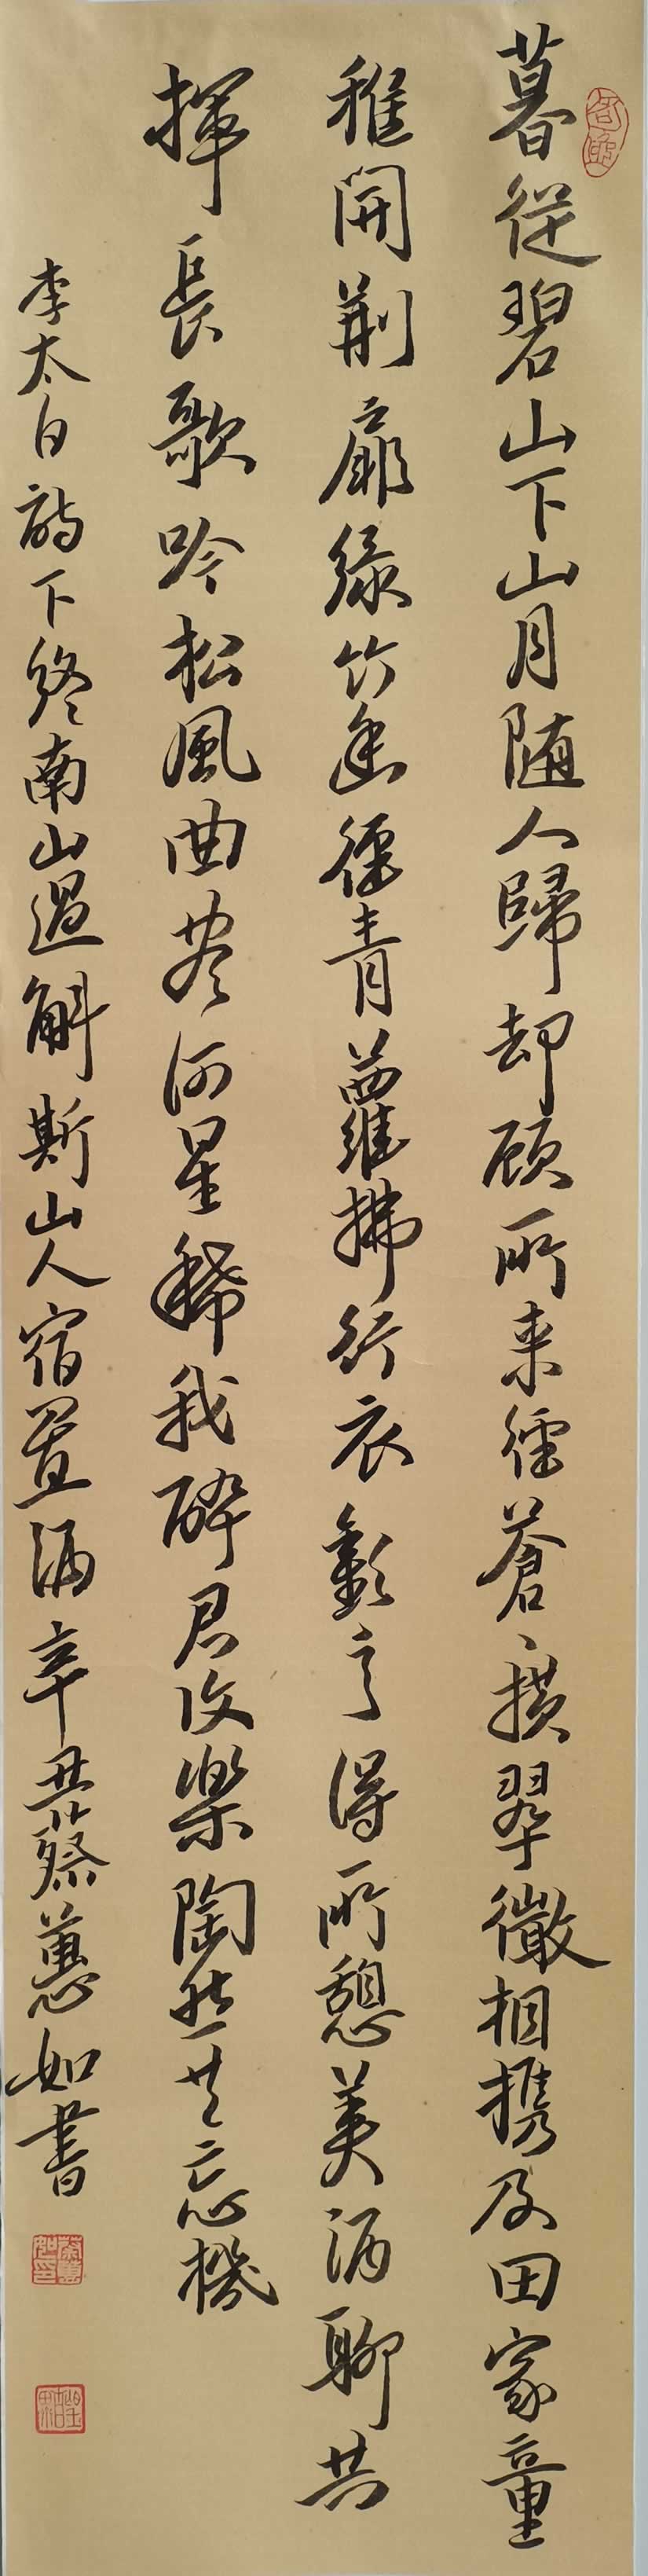 暮從碧山下山月随人歸却顧所来徑蒼〻橫翠微相携及田家童
稚開荆扉綠竹入幽徑青蘿拂行衣歡言得所憩美酒聊共
揮長歌吟松風曲盡河星稀我醉君復樂陶然共忘機
李太白詩下終南山過斛斯山人宿置酒辛丑蔡蕙如書